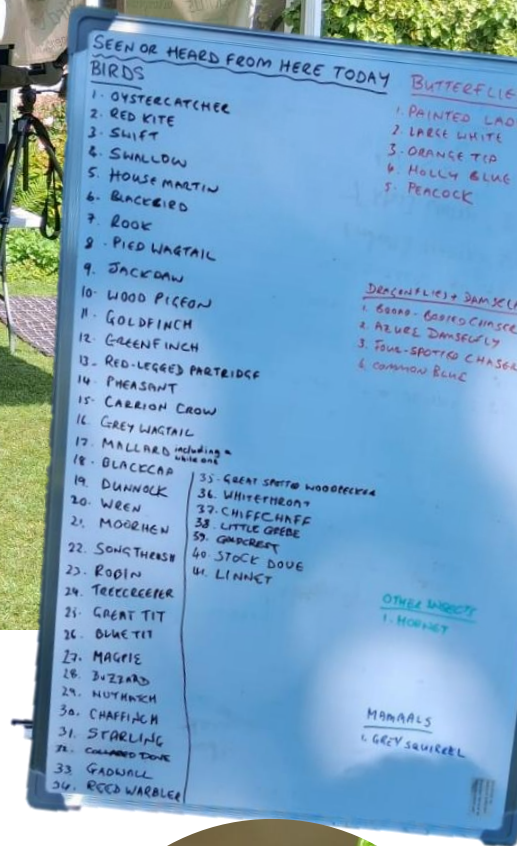 SEEN OR HEARD FROM HERE TODAY
BIRDS
1. OYSTERCATCHER
2. RED KITE
3. SWIFT
4. SWALLOW
5. HOUSE MARTIN
6. BLACKBIRD
7. ROOK
8. PIED WAGTAIL
9. JACKDAW
10. WOOD PIGEON
11. GOLDFINCH
12. GREENFINCH
13. RED-LEGGED PARTRIDGE
14. PHEASANT
15. CARRION CROW
16. GREY WAGTAIL
17. MALLARD including a white one
18. BLACKCAP
19. DUNNOCK
20. WREN
21. MOORHEN
22. SONG THRUSH
23. ROBIN
24. TREECREEPER
25. GREAT TIT
26. BLUE TIT
27. MAGPIE
28. BUZZARD
29. NUTHATCH
30. CHAFFINCH
31. STARLING
32. COLLARED DOVE
33. GADWALL
34. REED WARBLER
35. GREAT SPOTTED WOODPECKER
36. WHITETHROAT
37. CHIFFCHAFF
38. LITTLE GREBE
39. GOLDCREST
40. STOCK DOVE
41. LINNET
BUTTERFLIE
1. PAINTED LAD
2. LARGE WHITE
3. ORANGE TIP
4. HOLLY BLUE
5. PEACOCK
DRAGONFLIES + DAMSELF
1. BROAD-BODIED CHASER
2. AZURE DAMSELFLY
3. FOUR-SPOTTED CHASER
4. COMMON BLUE
OTHER INSECTS
1. HORNET
MAMMALS
1. GREY SQUIRREL